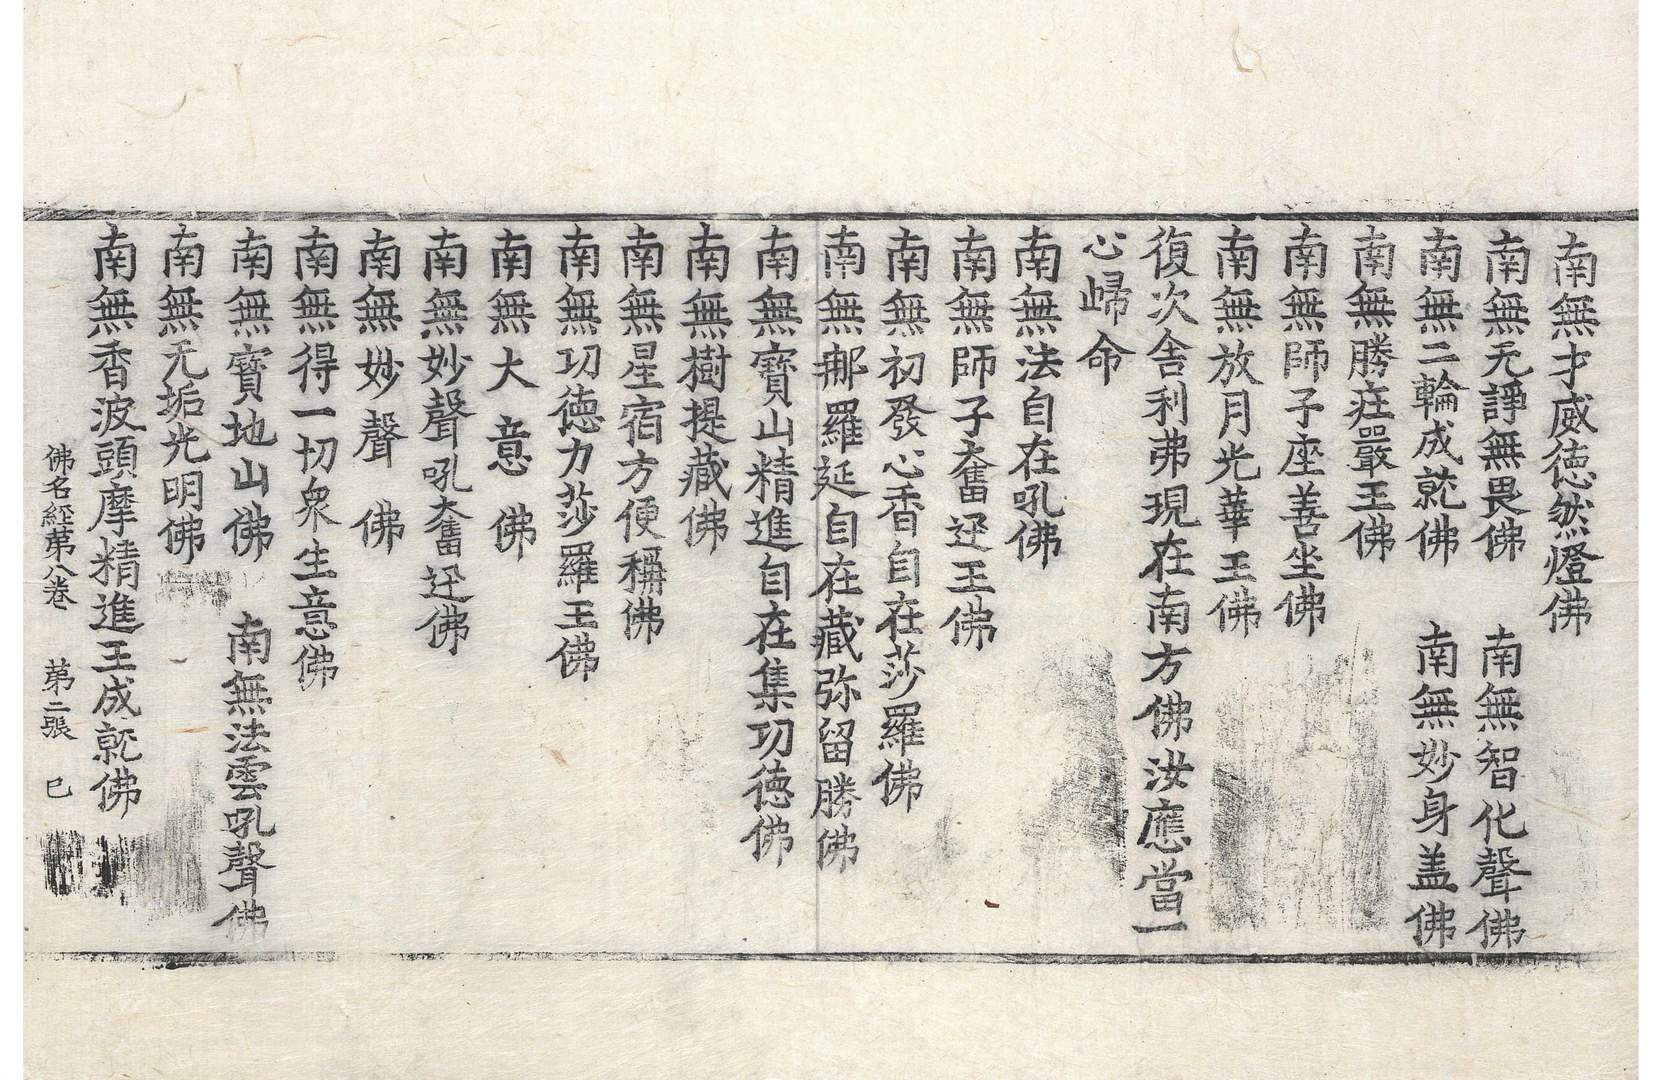 南無才威徳然燈佛
南無无諍無畏佛　南無智化聲佛
南無二輪成就佛　南無妙身盖佛
南無勝莊嚴王佛
南無師子座善坐佛
南無放月光華王佛
復次舍利弗現在南方佛汝應當一
心歸命
南無法自在吼佛
南無師子奮迅王佛
南無初發心香自在莎羅佛
南無那羅延自在藏弥留勝佛
南無寶山精進自在集功徳佛
南無樹提藏佛
南無星宿方便稱佛
南無功徳力莎羅王佛
南無大意佛
南無妙聲吼奮迅佛
南無妙聲佛
南無得一切衆生意佛
南無寶地山佛　南無法雲吼聲佛
南無无垢光明佛
南無香波頭摩精進王成就佛
佛名經第八卷　第二張　巳